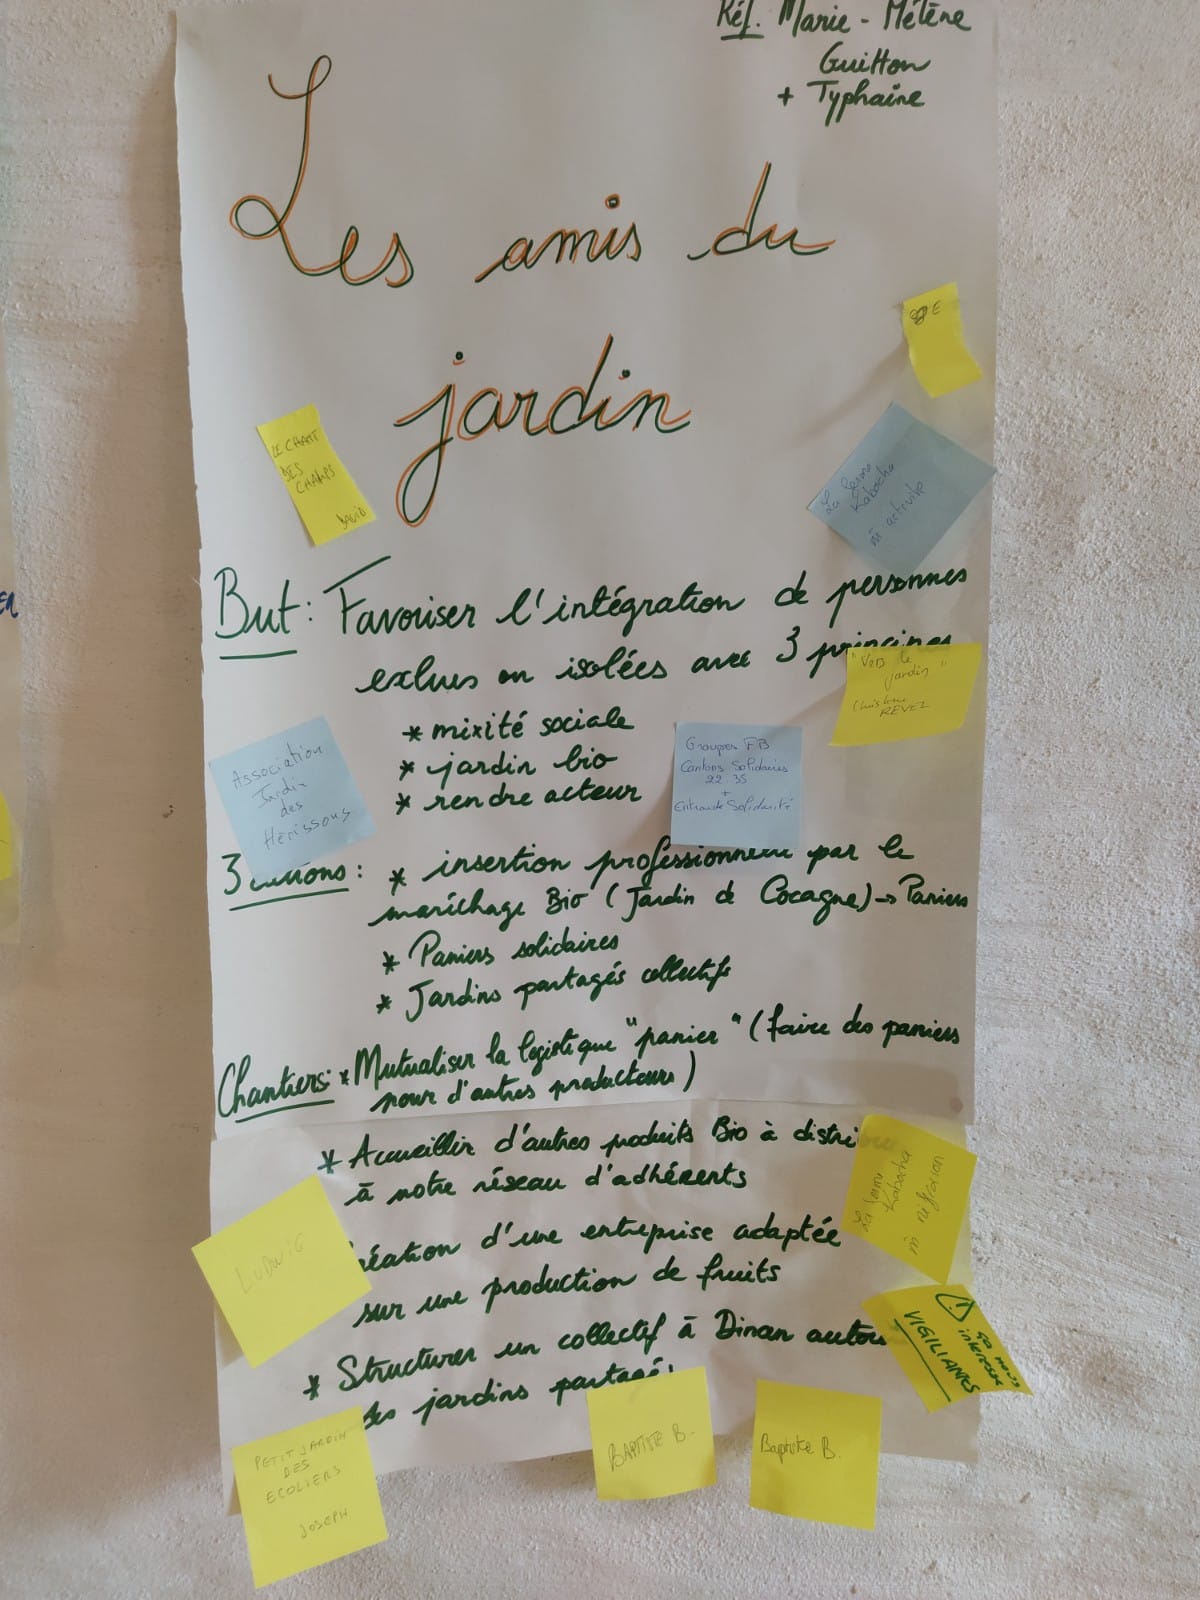 Réf. Marie-Hélène
Guitton
+ Typhaine
Les amis du
jardin
LE CHANT
DES
CHAMPS
DAVID
La ferme
Kabocha
en activité
But: Favoriser l'intégration de personnes
exclues ou isolées avec 3 principes
* mixité sociale
* jardin bio
* rendre acteur
"Vers le
jardin"
Christine
REVEL
Association
Jardin
des
Hérissons
Groupes FB
Cantons Solidaires
22 35
+
Entraide Solidarité
3 actions: * insertion professionnelle par le
maraîchage Bio (Jardin de Cocagne) -> Paniers
* Paniers solidaires
* Jardins partagés collectifs
Chantiers: * Mutualiser la logistique "panier" (faire des paniers
pour d'autres producteurs)
* Accueillir d'autres produits Bio à distri
à notre réseau d'adhérents
réation d'une entreprise adaptée
sur une production de fruits
* Structurer un collectif à Dinan autou
des jardins partagés
La ferme
Kabocha
en réflexion
LUDWIG
! ça nous
intéresse
VIGILIANTES
PETIT JARDIN
DES
ECOLIERS
JOSEPH
BAPTISTE B.
Baptiste B.